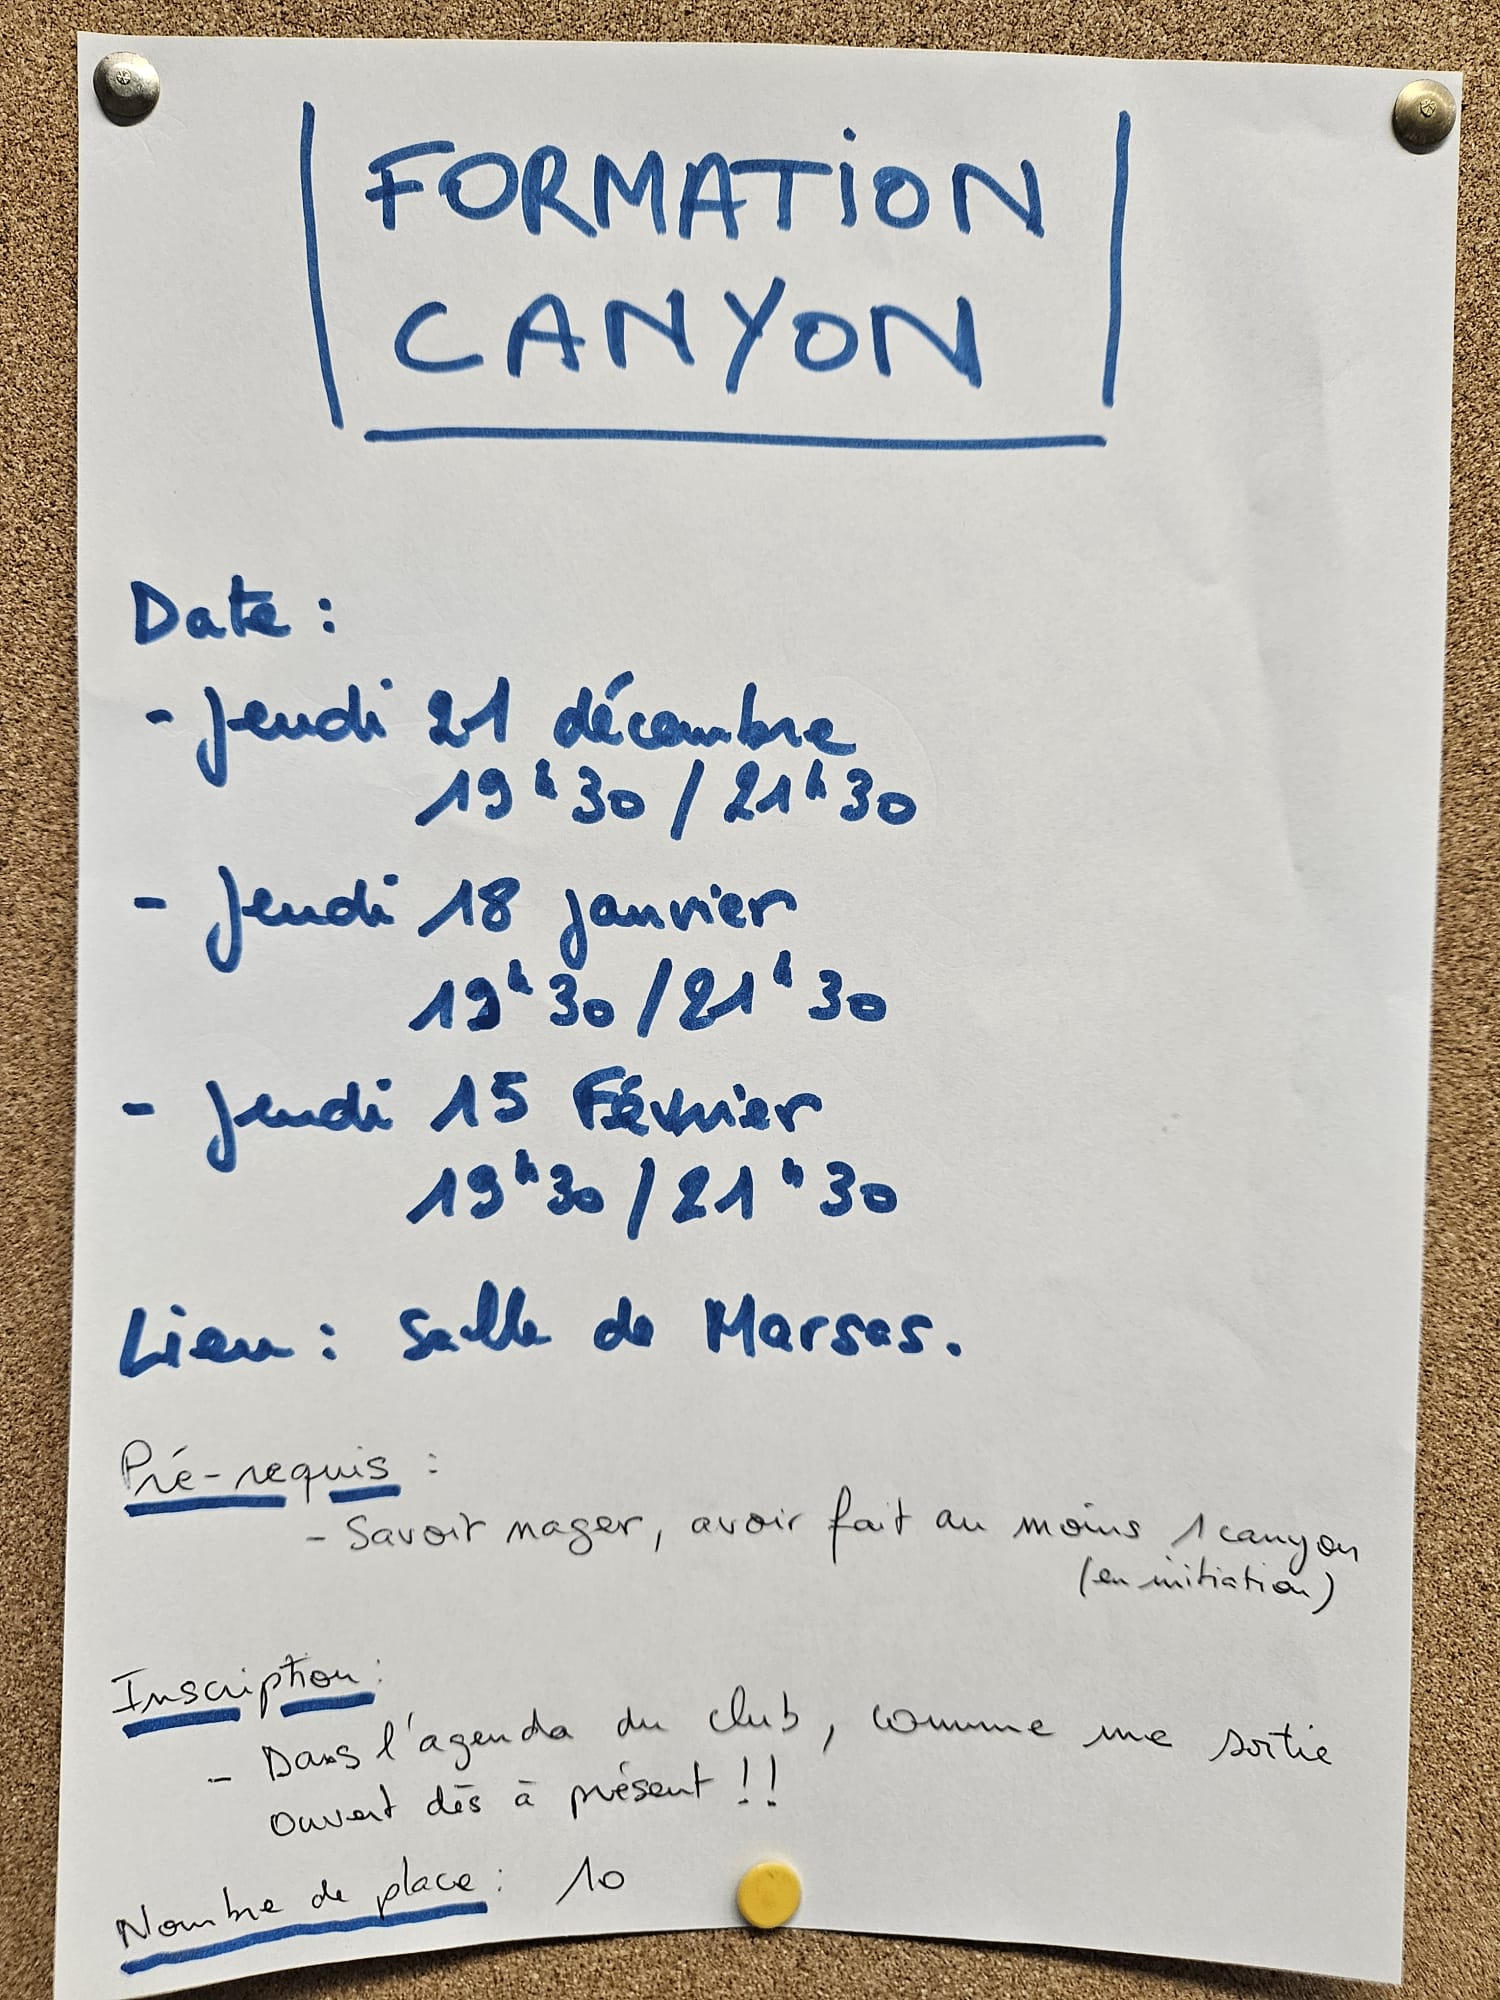 FORMATION
CANYON
Date :
- Jeudi 21 décembre
19h30 / 21h30
- Jeudi 18 janvier
19h30 / 21h30
- Jeudi 15 Février
19h30 / 21h30
Lieu : Salle de Marsas.
Pré-requis :
- Savoir nager, avoir fait au moins 1 canyon
(en initiation)
Inscription :
- Dans l'agenda du club, comme une sortie
Ouvert dès à présent !!
Nombre de place : 10